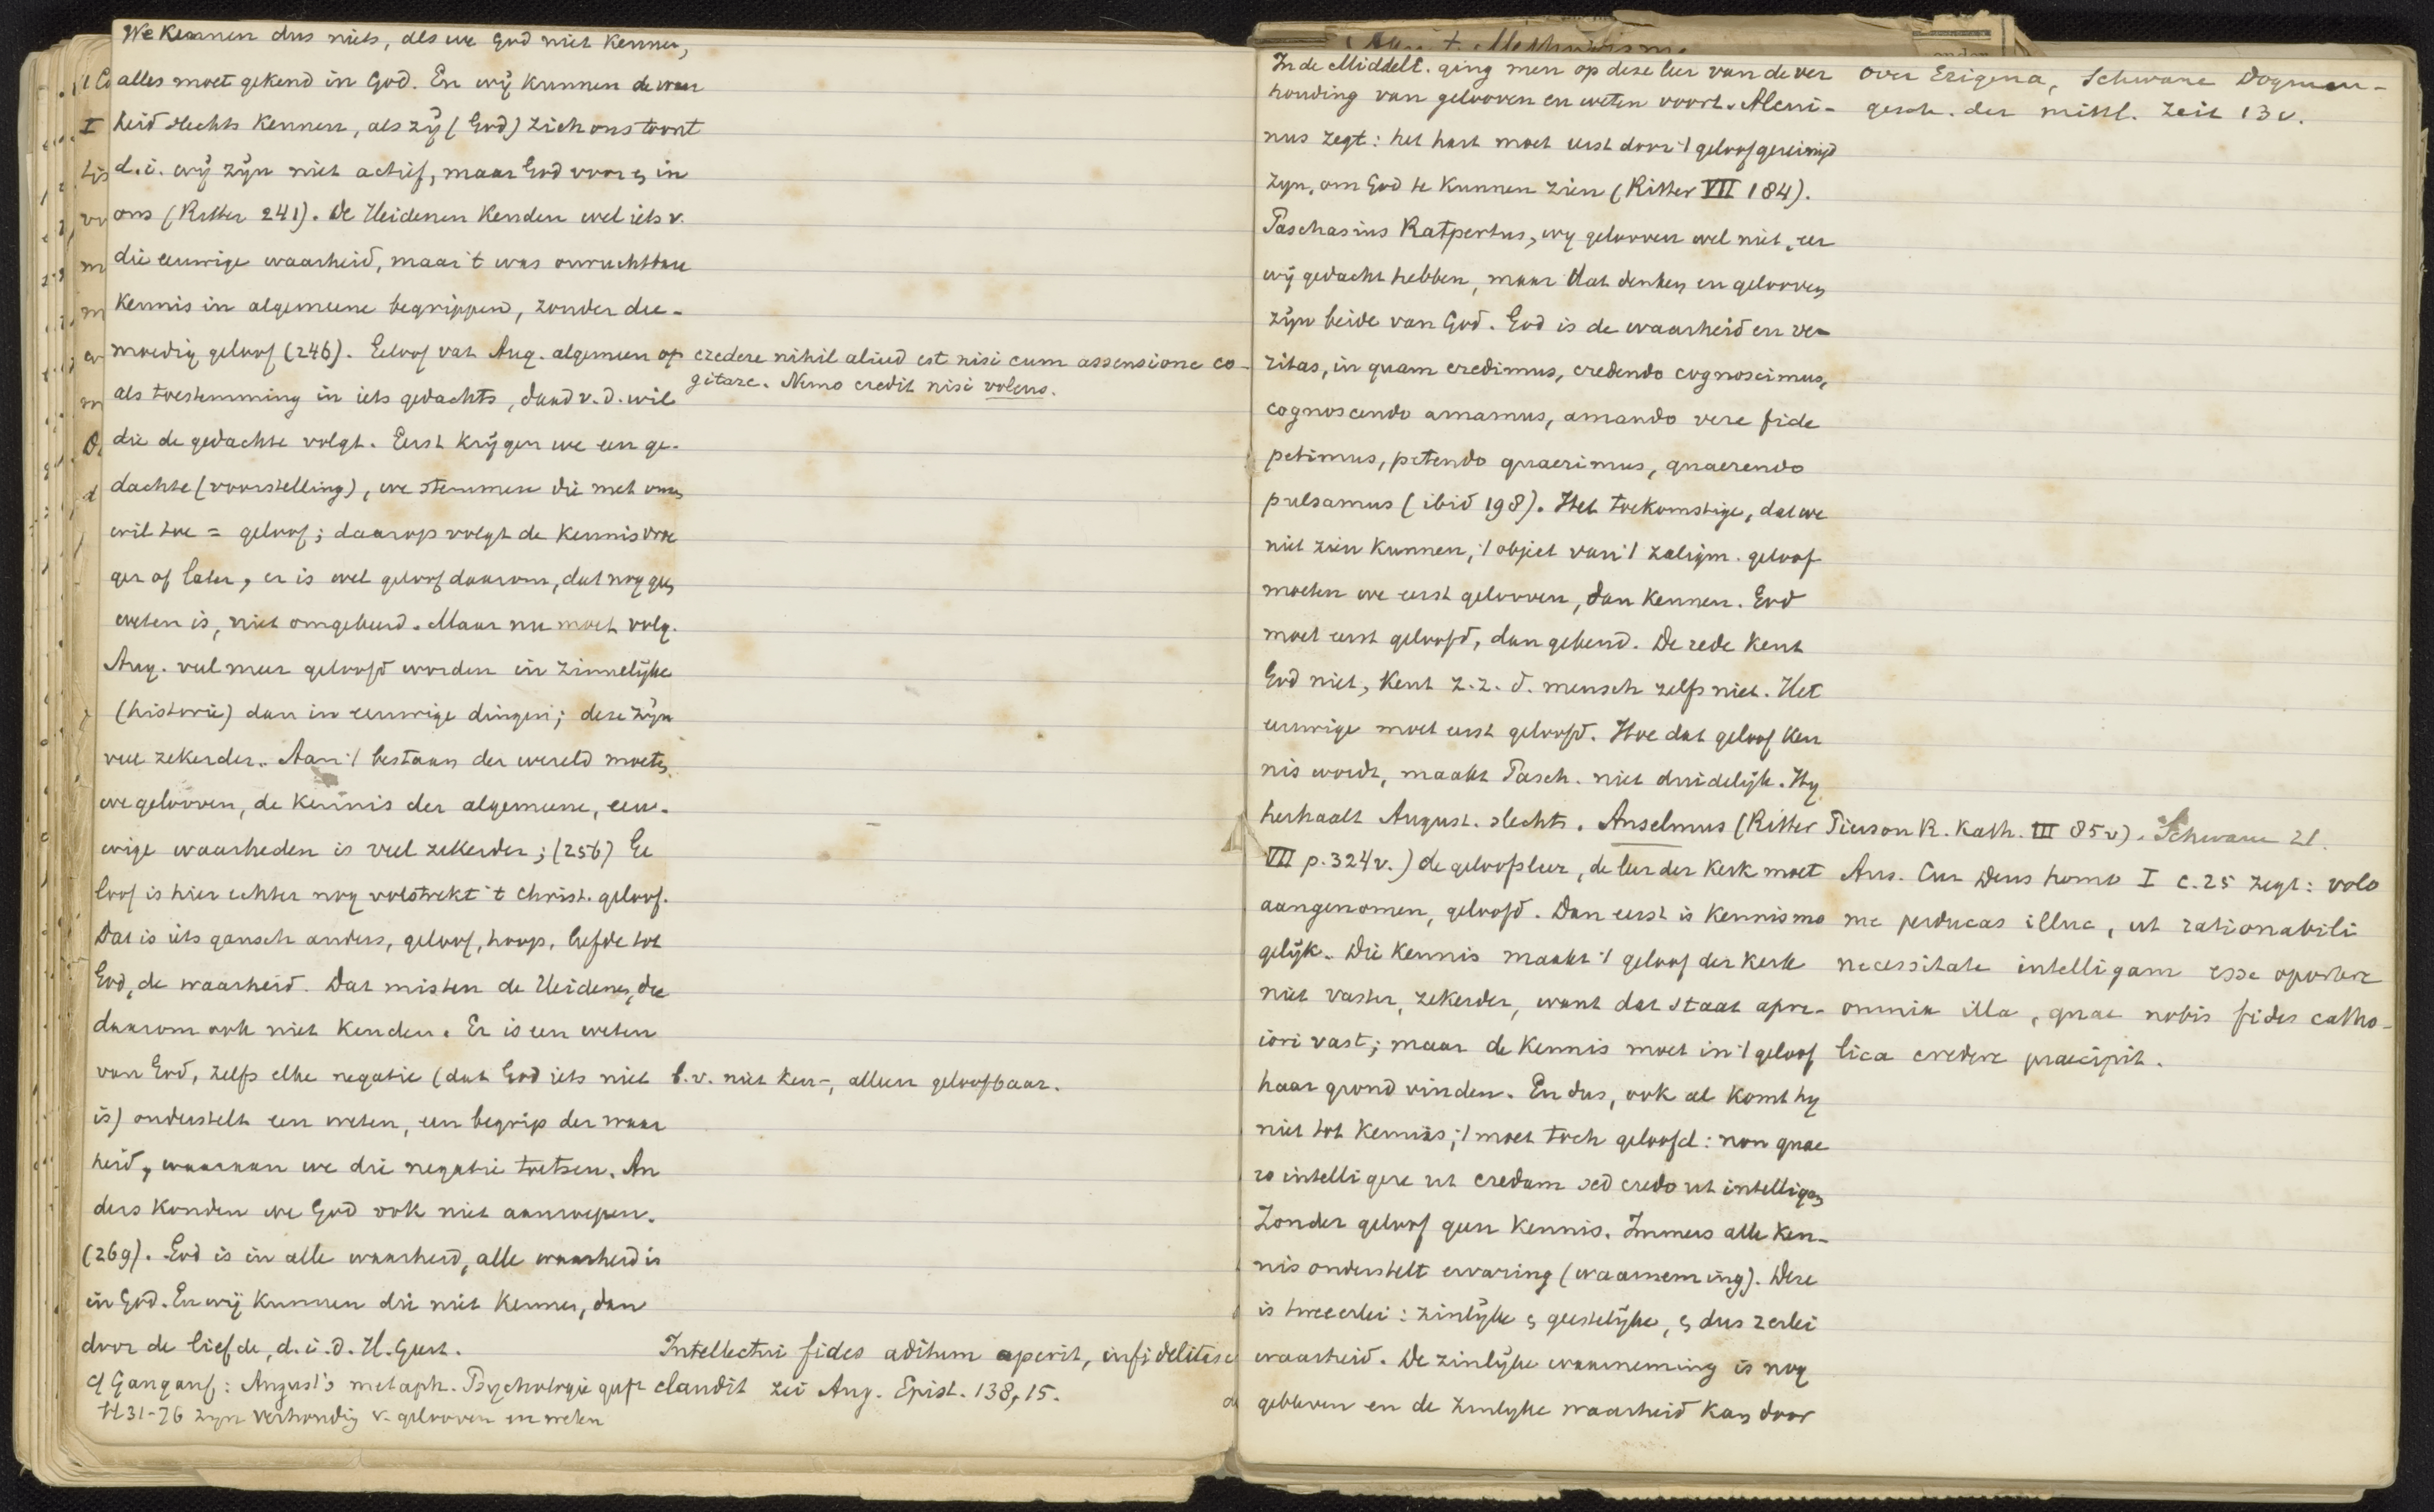 We kennen dus niets, als we God niet kennen,
alles moet gekend in God. En wij kunnen de waar
heid slechts kennen, als zij (God) zich ons toont
d.i. wij zijn niet actief, maar God voor & in
ons (Ritter 241). De Heidenen kenden wel iets v.
die eeuwige waarheid, maar 't was onvruchtbare
kennis in algemeene begrippen, zonder dee-
moedig geloof (246). Geloof vat Aug. algemeen op
als toestemming in iets gedachts, daad v.d. wil
die de gedachte volgt. Eerst krijgen we een ge-
dachte (voorstelling), we stemmen die met onze
wil toe = geloof; daarop volgt de kennis vroe
ger of later, er is wel geloof daarom, dat nog geen
weten is, niet omgekeerd. Maar nu moet volg.
Aug. veel meer geloofd worden in zinnelijke
(historie) dan in eeuwige dingen; deze zijn
veel zekerder. Aan 't bestaan der wereld moeten
we gelooven, de kennis der algemeene, eeu-
wige waarheden is veel zekerder; (256) Ge
loof is hier echter nog volstrekt 't Christ. geloof.
Dat is iets gansch anders, geloof, hoop, liefde tot
God, de waarheid. Dat misten de Heidenen, die
daarom ook niet kenden. Er is een weten
van God, zelfs elke negatie (dat God iets niet
is) onderstelt een weten, een begrip der waar
heid, waaraan we die negatie toetsen. An
ders konden we God ook niet aanroepen.
(269). God is in alle waarheid, alle waarheid is
in God. En wij kunnen die niet kennen, dan
door de liefde, d.i. d. H. Geest.
cf Gangauf: August's metaph. Psychologie
H 31-76 zijn verhoudig v. gelooven en weten
credere nihil aliud est nisi cum assensione co-
gitare. Nemo credit nisi volens.
b.v. niet ken-, alleen geloofbaar.
Intellectui fides aditum aperit, infidelitas
claudit zei Aug. Epist. 138, 15.
In de Middelt. ging men op deze leer van de ver
houding van gelooven en weten voort. Alcui-
nus zegt: het hart moet eerst door 't geloof gereinigd
zijn, om God te kunnen zien (Ritter VII 184).
Paschasius Ratpertus, wij gelooven wel niet, eer
wij gedacht hebben, maar dat denken en gelooven
zijn beide van God. God is de waarheid en ve-
ritas, in quam credimus, credendo cognoscimus,
cognoscendo amamus, amando vere fide
petimus, petendo quaerimus, quaerendo
pulsamus (ibid 198). Het toekomstige, dat we
niet zien kunnen, 't object van 't zaligm. geloof
moeten we eerst gelooven, dan kennen. God
moet eerst geloofd, dan gekend. De rede kent
God niet, kent z.z. d. mensch zelfs niet. Het
eeuwige moet eerst geloofd. Hoe dat geloof ken
nis wordt, maakt Pasch. niet duidelijk. Hij
herhaalt August. slechts. Anselmus (Ritter
VII p. 324v.) de geloofsleer, de leer der Kerk moet
aangenomen, geloofd. Dan eerst is kennis mo
gelijk. Die kennis maakt 't geloof der Kerk
niet vaster, zekerder, want dat staat apri-
iori vast; maar de kennis moet in 't geloof
haar grond vinden. En dus, ook al komt hij
niet tot kennis, 't moet toch geloofd: non quae
ro intelligere ut credam sed credo ut intelligam
Zonder geloof geen kennis. Immers alle ken-
nis onderstelt ervaring (waarneming). Deze
is tweeerlei: zinlijke & geestelijke, & dus 2erlei
waarheid. De zinlijke waarneming is nog
gebleven en de zinlijke waarheid kan door
over Erigena, Schwane Dogmen-
gesch. der mittl. Zeit 13v.
Pierson R. Kath. III 85v). Schwane 21.
Ans. Cur Deus homo I c.25 zegt: volo
me perducas illuc, ut rationabili
necessitate intelligam esse oportere
omnia illa, quae nobis fides catho-
lica credere praecipit.